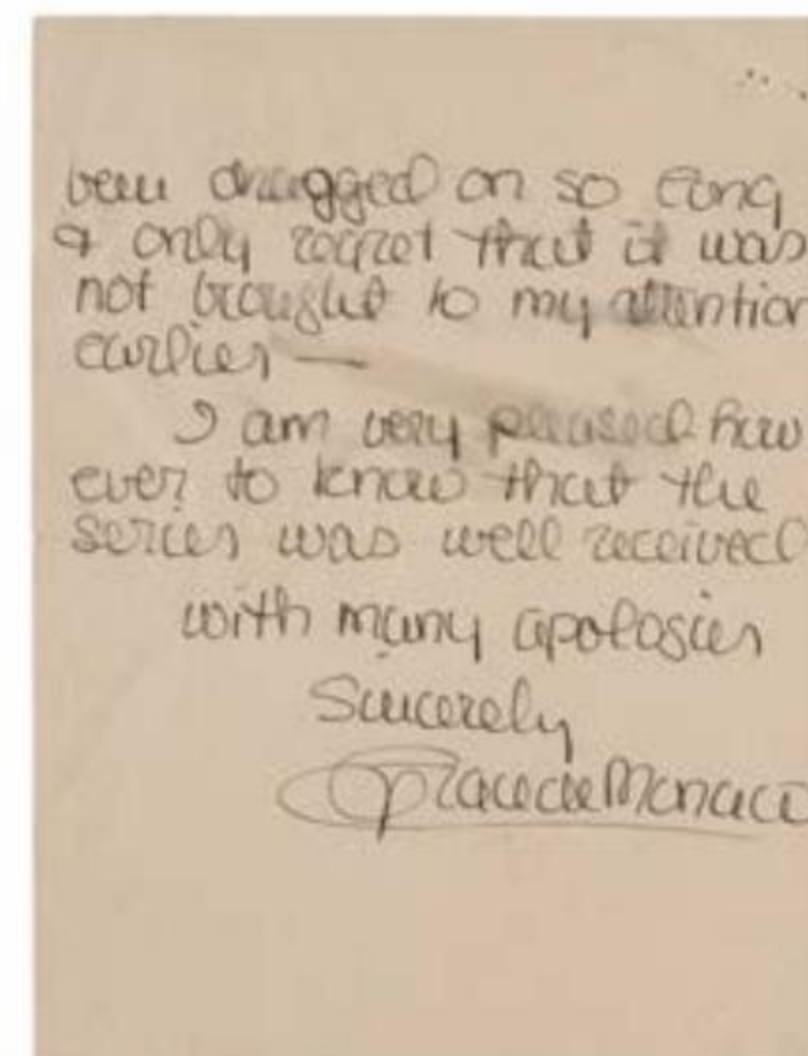 been dragged on so long
& only regret that it was
not brought to my attention
earlier —
I am very pleased how
ever to know that the
series was well received
with many apologies
Sincerely
Grace de Monaco